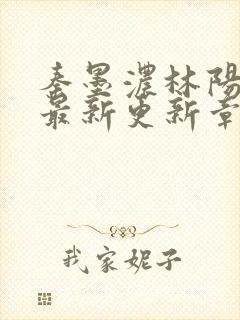 秦墨濃林陽
最新更新章
我家妮子